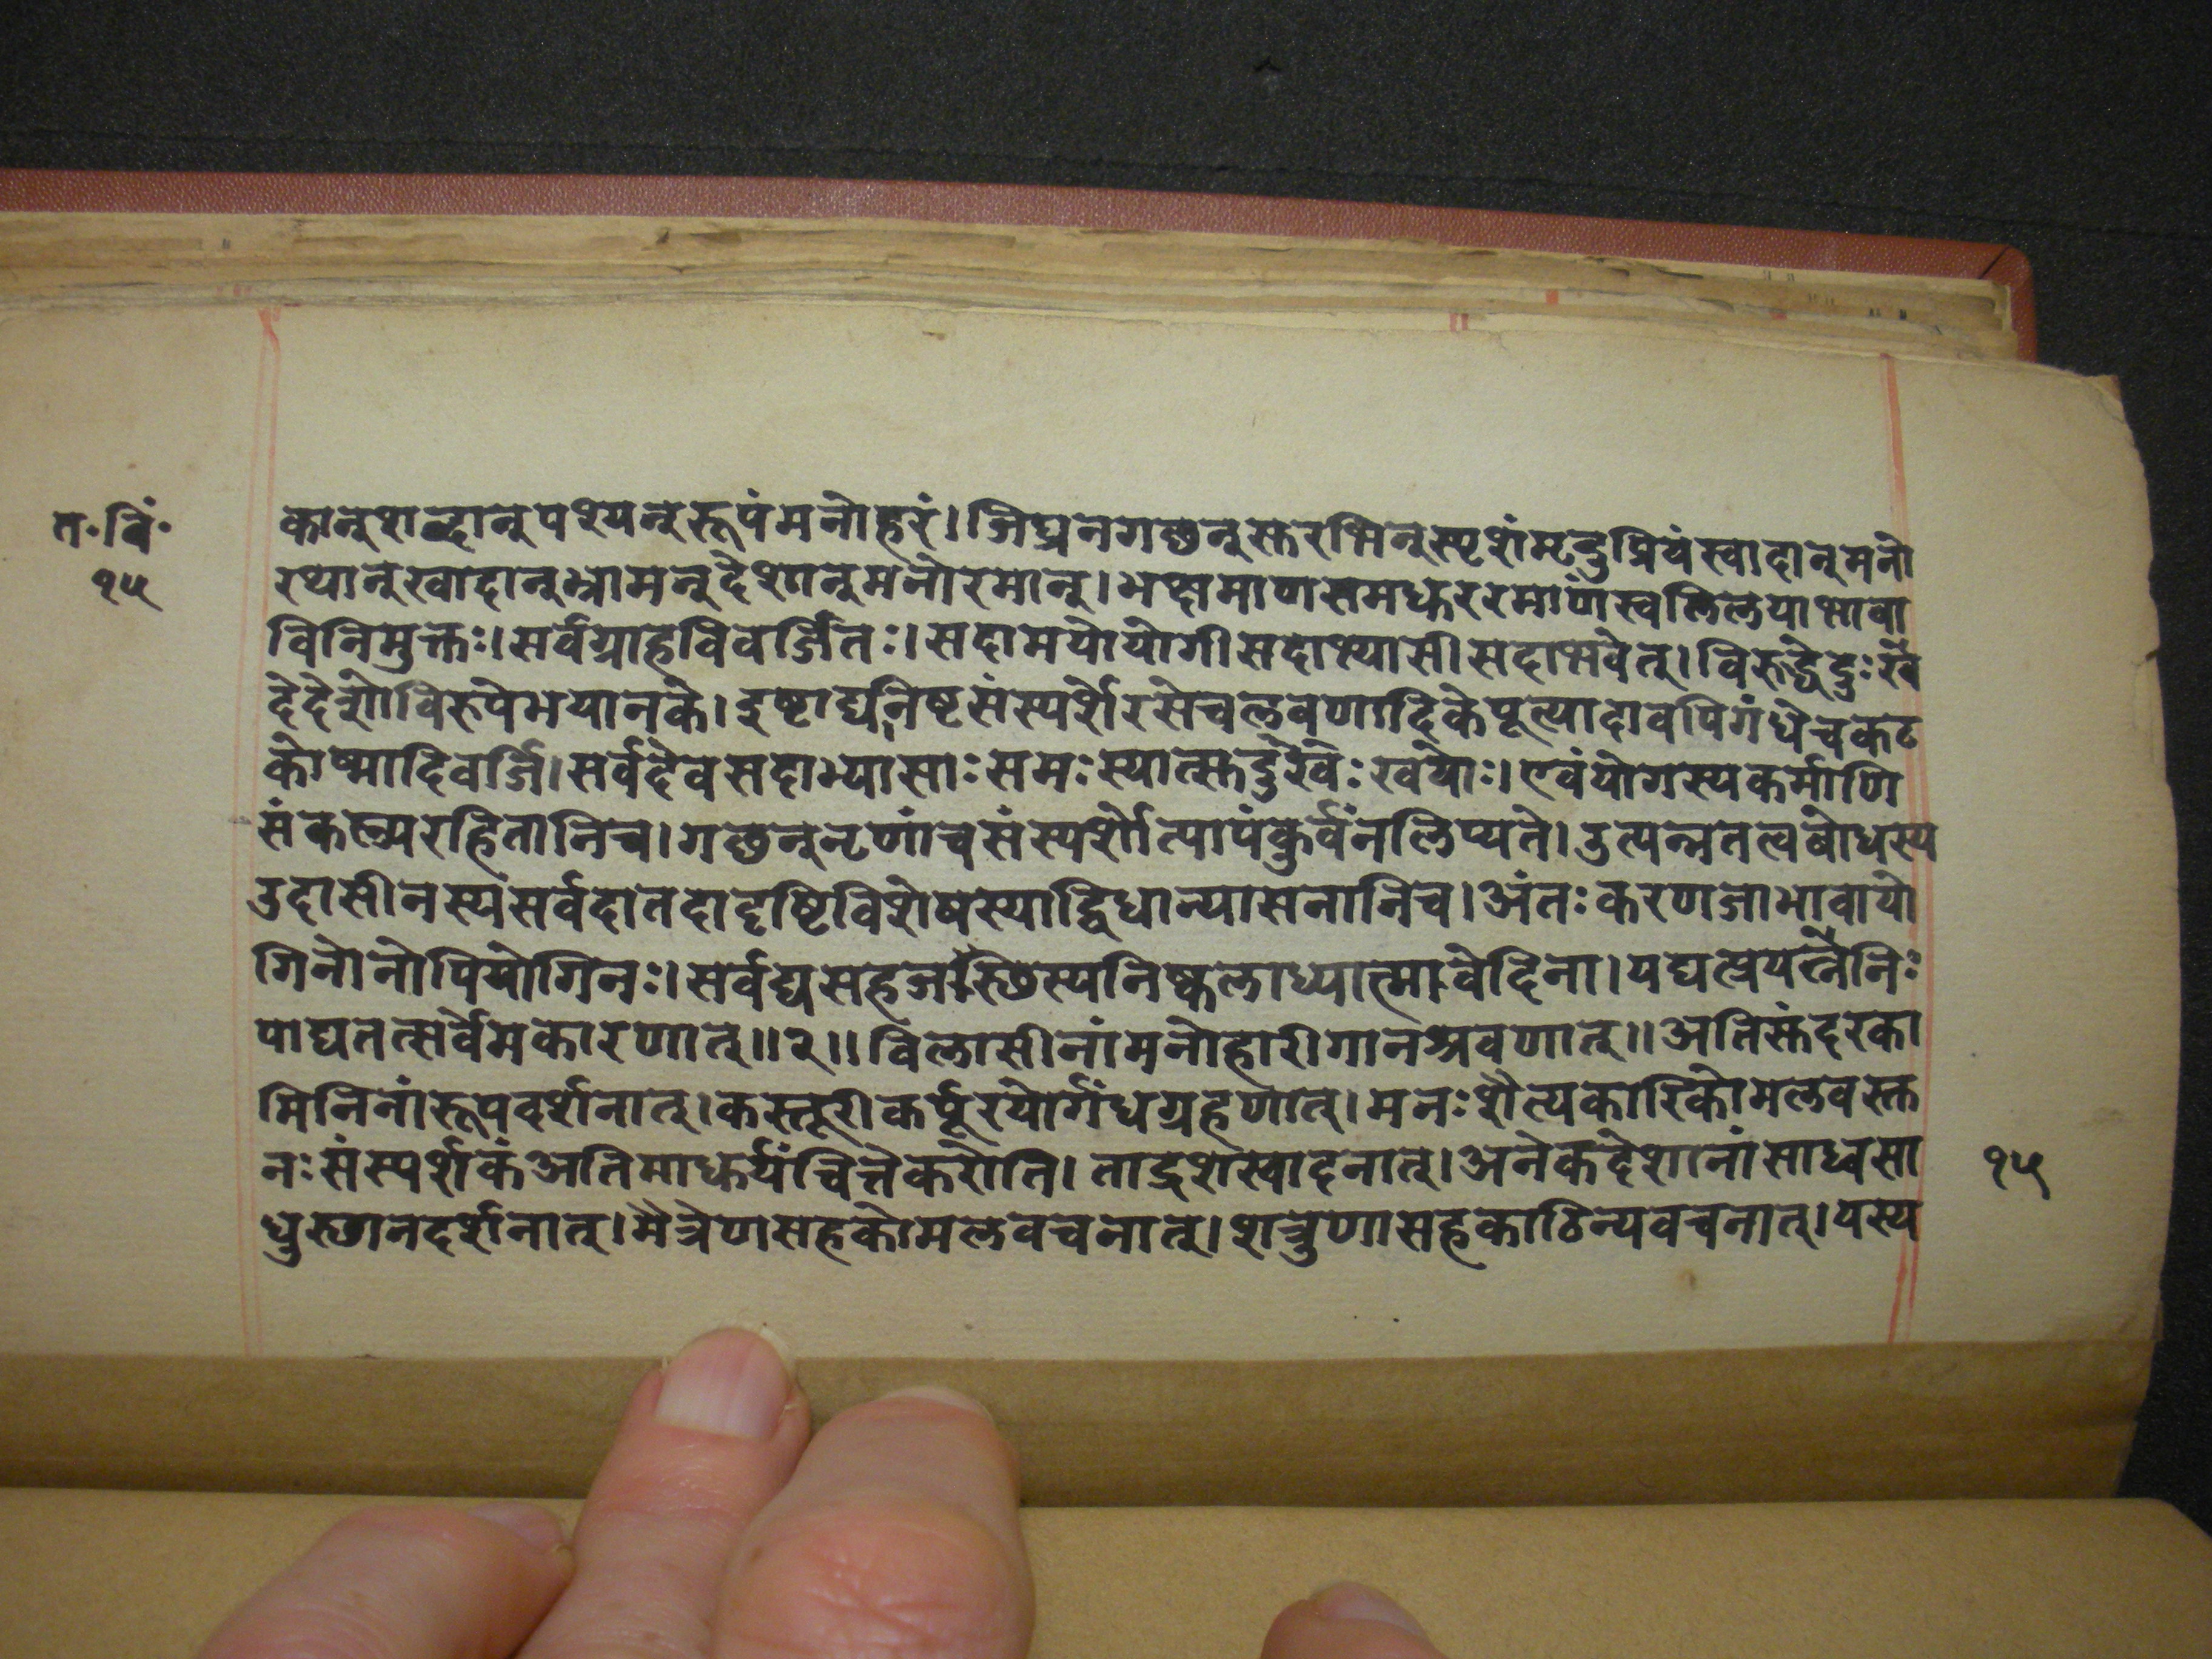 त॰बिं॰
१५
कान्शब्दान्पश्यन्रूपंमनोहरं।जिघ्रनगछन्सुरभिन्स्पृशंमृदुप्रियंस्वादान्मनो
रथान्खादान्भ्रामन्देशान्मनोरमान्।भक्षमाणसमधुररमाणस्वलिलयाभावा
विनिमुक्तः।सर्वग्राहविवर्जितः।सदामयोयोगीसदाभ्यासीसदाभवेत्।विरुद्धेदुःखे
देदेशोविरुपेभयानके।इष्टाद्यनिष्टसंस्पर्शेरसेचलवणादिकेपूत्यादावपिगंधेचकट
कोष्मादिवर्जि।सर्वदैवसदाभ्यासाःसमःस्यात्सुदुखेःखयोः।एवंयोगस्यकर्माणि
संकल्परहितानिच।गछन्नृणांचसंस्पर्शोत्पापंकुर्वंनलिप्यते।उत्पन्नतत्वबोधस्य
उदासीनस्यसर्वदातदादृष्टिविशेषस्याद्विधान्यासनानिच।अंतःकरणजाभावायो
गिनोनोपियोगिनः।सर्वद्यसहजास्छिस्यनिष्कलाध्यात्मावेदिना।यद्यत्प्रेयत्नेनिः
पाद्यतत्सर्वैमकारणात्॥२॥विलासीनांमनोहारीगानश्रवणात्॥अतिसुंदरका
मिनिनांरूपदर्शनात्।कस्तूरीकर्पूरयोर्गंधग्रहणात्।मनःशैत्यकारिकोमलवस्तु
नःसंस्पर्शकंअतिमाधुर्यंचित्तेकरोति।तादृशस्वादनात्।अनेकदेशानांसाध्वसा
धुरुणानदर्शनात्।मैत्रेणसहकोमलवचनात्।शत्रुणासहकाठिन्यवचनात्।यस्य
१५